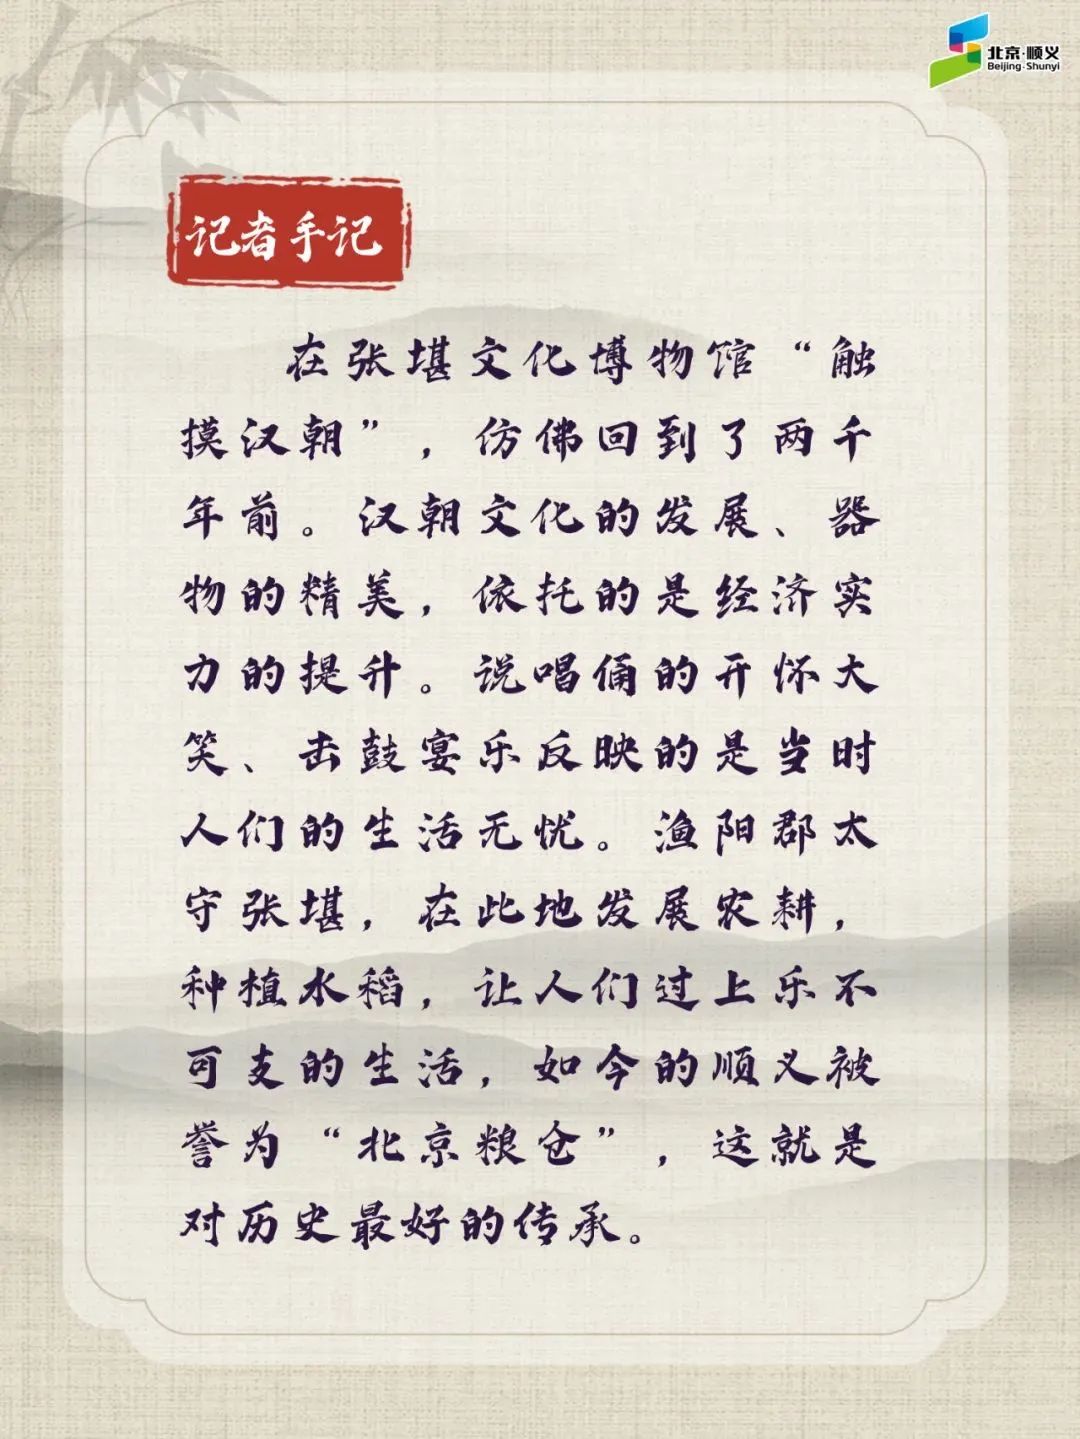 北京·顺义
Beijing·Shunyi
记者手记
在张堪文化博物馆“触
摸汉朝”，仿佛回到了两千
年前。汉朝文化的发展、器
物的精美，依托的是经济实
力的提升。说唱俑的开怀大
笑、击鼓宴乐反映的是当时
人们的生活无忧。渔阳郡太
守张堪，在此地发展农耕，
种植水稻，让人们过上乐不
可支的生活，如今的顺义被
誉为“北京粮仓”，这就是
对历史最好的传承。